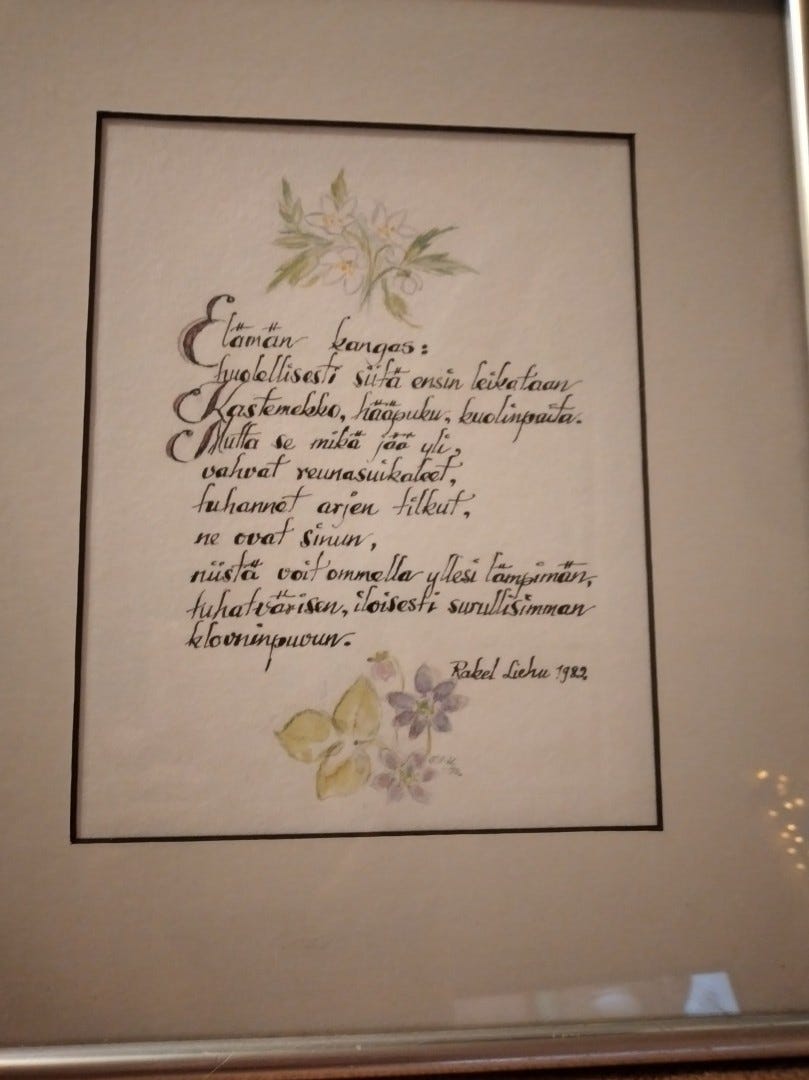 Elämän kangas:
huolellisesti siitä ensin leikataan
Kastemekko, hääpuku, kuolinpaita.
Mutta se mikä jää yli,
vahvat reunasuikaleet,
tuhannet arjen tilkut,
ne ovat sinun,
niistä voit ommella yllesi lämpimän,
tuhatvärisen, iloisesti surullisimman
klovninpuvun.
Rakel Liehu 1982